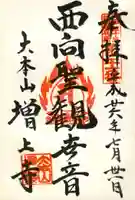 奉拝
平成廿六年七月廿日
西向聖観世音
大本山
増上寺